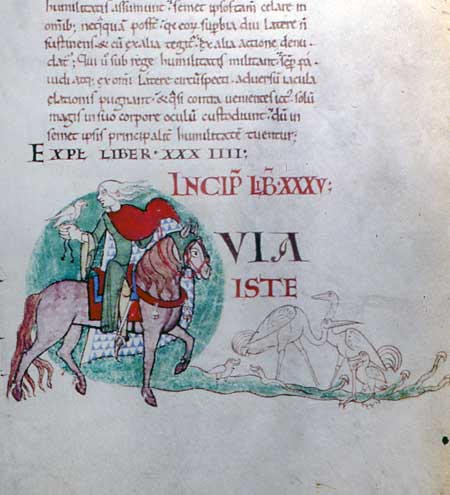 humilitatis assumunt; semet ipsos tam celare in
omib; neq̄quam poss̄t. q̄ eoꝝ supbia diu latere n̄
sustinens. & cū ex alia tegit̄. ex alia actione denu
dat̄; Qui ū sub rege humilitatis militant. sēp pa
uidi atq; ex om̄i latere circūspecti. aduersū iacula
elationis pugnant. & q̄si contra uenientes ict; solum
magis in suo corpore oculū custodiunt. dum in
semet ipsis principalit̄ humilitatē tuentur;
EXPL̄ LIBER · XXXIIII ·
INCIP̄ LIB̄ · XXXV ·
QVIA
ISTE